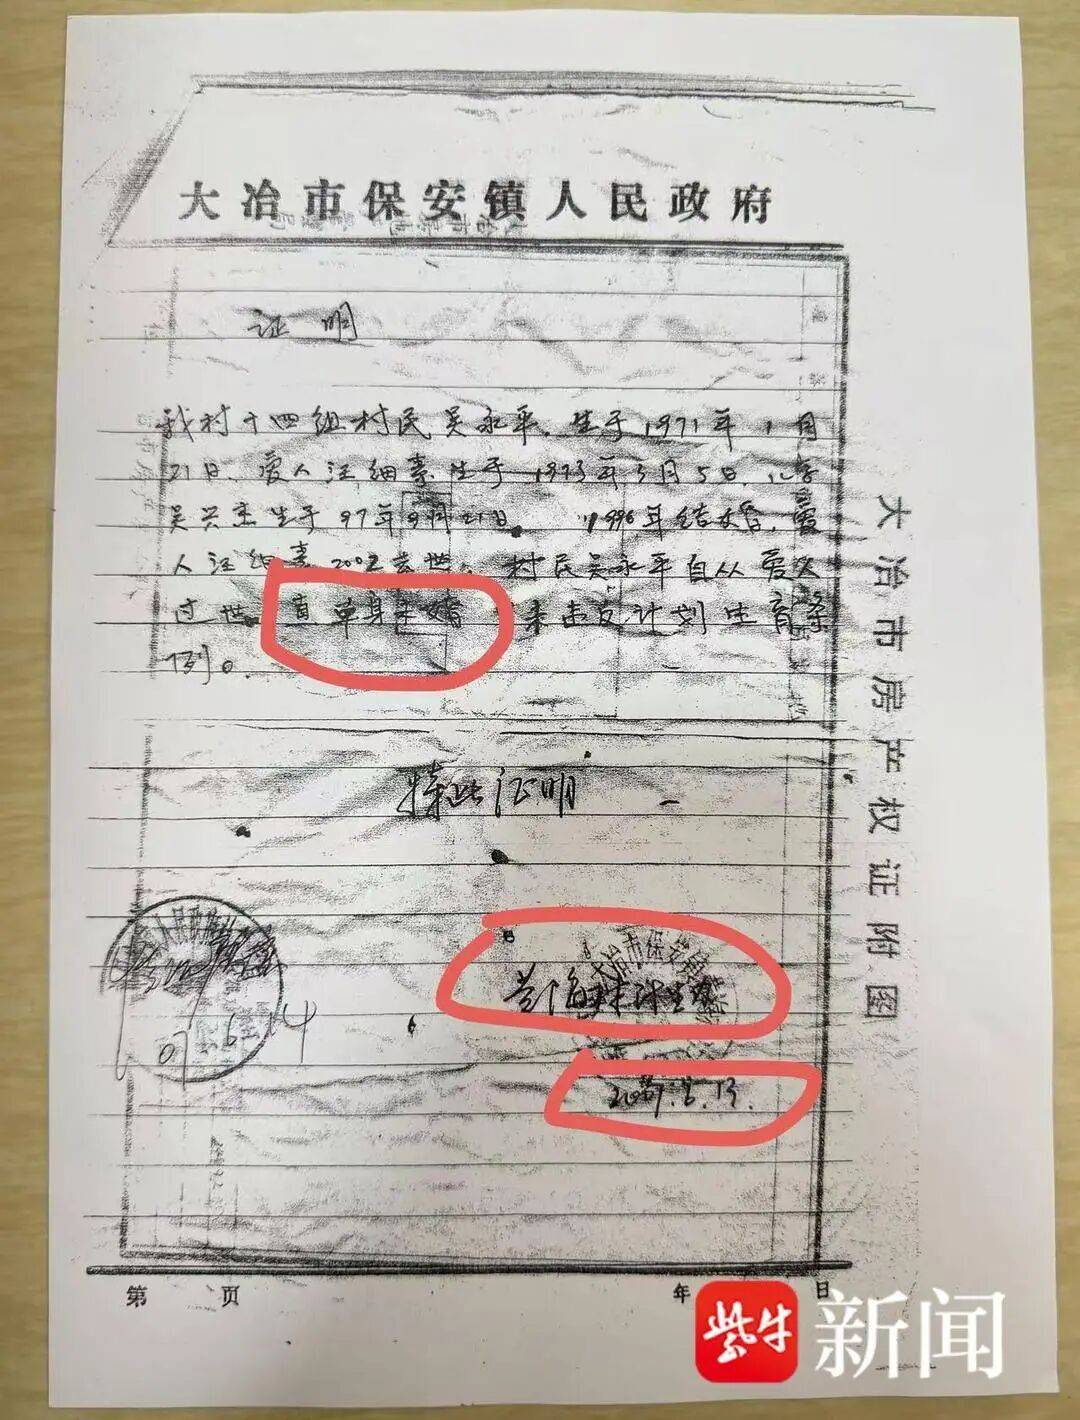 大冶市保安镇人民政府
证明
我村十四组村民吴永平，生于1971年1月
21日、爱人汪细素生于1973年3月5日、儿子
吴兴杰生于97年9月21日 1996年结婚，爱
人汪细素2002去世。村民吴永平自从爱人
过世 直单身未婚 未违反计划生育条
例。
特此证明
大冶市保安镇
村计生
13.
07.6.14
第 页
年 日
大冶市房产权证附图
紫牛新闻